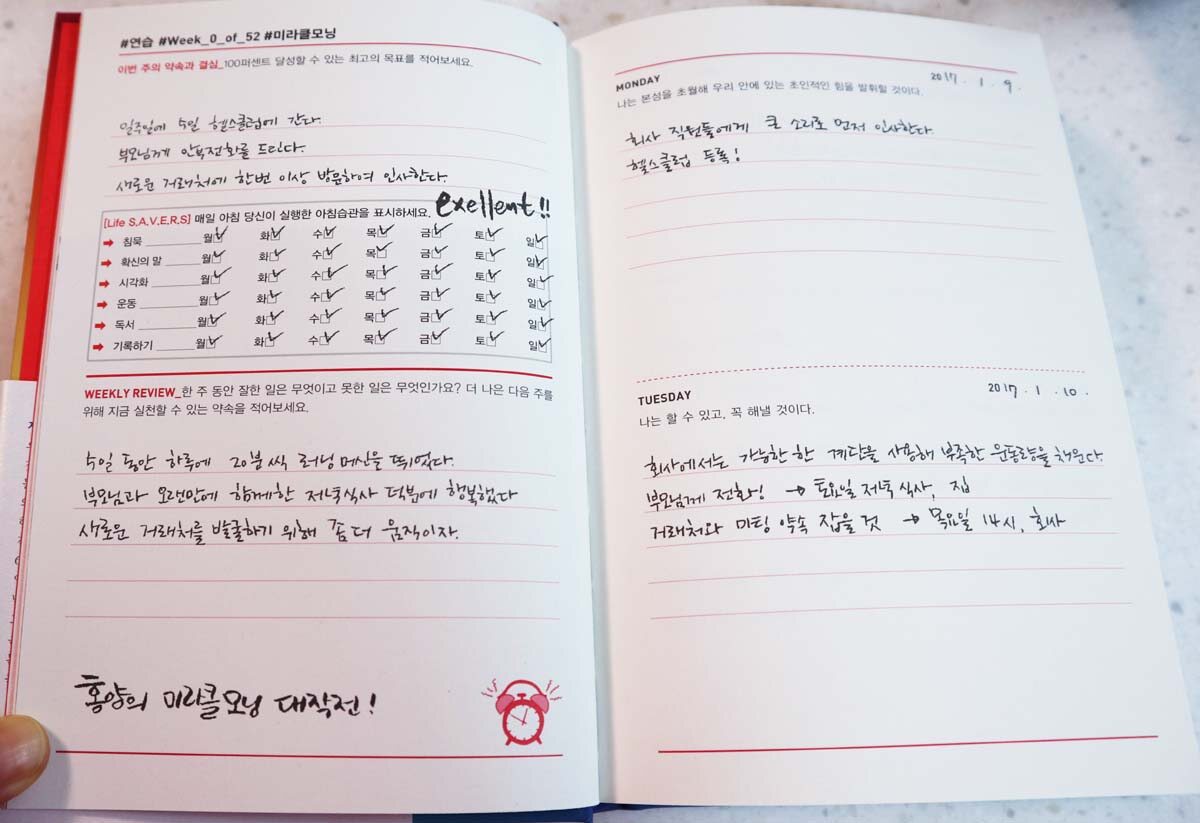 #연습 #Week_0_of_52 #미라클모닝
이번 주의 약속과 결심_100퍼센트 달성할 수 있는 최고의 목표를 적어보세요.
일주일에 5일 헬스클럽에 간다.
부모님께 안부전화를 드린다.
새로운 거래처에 한번 이상 방문하여 인사한다.
[Life S.A.V.E.R.S] 매일 아침 당신이 실행한 아침습관을 표시하세요. exellent!!
침묵 월 화 수 목 금 토 일
확신의 말 월 화 수 목 금 토 일
시각화 월 화 수 목 금 토 일
운동 월 화 수 목 금 토 일
독서 월 화 수 목 금 토 일
기록하기 월 화 수 목 금 토 일
WEEKLY REVIEW_한 주 동안 잘한 일은 무엇이고 못한 일은 무엇인가요? 더 나은 다음 주를
위해 지금 실천할 수 있는 약속을 적어보세요.
5일 동안 하루에 20분씩 러닝머신을 뛰었다.
부모님과 오랜만에 함께한 저녁식사 덕분에 행복했다
새로운 거래처를 발굴하기 위해 좀 더 움직이자.
홍양의 미라클모닝 대작전!
MONDAY 2017. 1. 9.
나는 본성을 초월해 우리 안에 있는 초인적인 힘을 발휘할 것이다.
회사 직원들에게 큰 소리로 먼저 인사한다.
헬스클럽 등록!
TUESDAY 2017. 1. 10.
나는 할 수 있고, 꼭 해낼 것이다.
회사에서는 가능한한 계단을 사용해 부족한 운동량을 채운다.
부모님께 전화! → 토요일 저녁식사, 집
거래처와 미팅 약속 잡을 것 → 목요일 14시, 회사